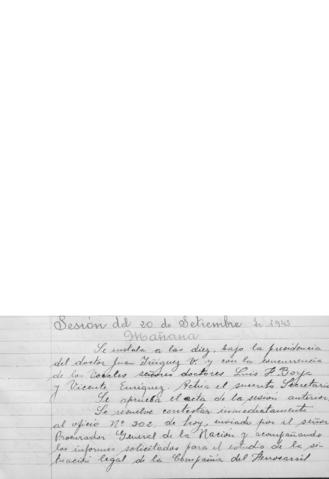 Sesión del 20 de Setiembre de 1943
Mañana
Se instala a las diez, bajo la presidencia
del doctor Juan Iñiguez V. y con la concurrencia
de los Vocales señores doctores Luis F. Borja
y Vicente Enríquez. Actúa el suscrito Secretario
Se aprueba el acta de la sesión anterior.
Se resuelve contestar inmediatamente
al oficio Nº 302, de hoy, enviado por el señor
Procurador General de la Nación y acompañando
los informes solicitados para el estudio de la si-
tuación legal de la Compañía del Ferrocarril